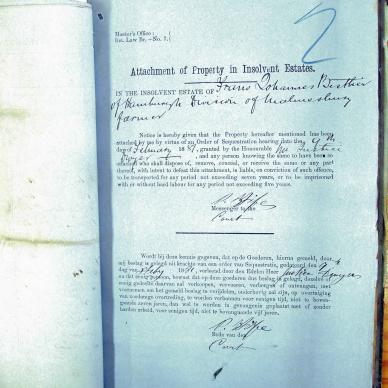 Master's Office :
Ins. Law Br.—No. 7.
2
Attachment of Property in Insolvent Estates.
IN THE INSOLVENT ESTATE OF Frans Johannes
of Division of Malmesbury
farmer
Notice is hereby given that the Property hereafter mentioned has been
attached by me by virtue of an Order of Sequestration bearing date the 9th
day of February granted by the Honorable Mr Justice
Dwyer and any person knowing the same to have been so
attached who shall dispose of, remove, conceal, or receive the same or any part
thereof, with intent to defeat this attachment, is liable, on conviction of such offence,
to be transported for any period not exceeding seven years, or to be imprisoned
with or without hard labour for any period not exceeding five years.
Messenger to the
Court
Wordt bij deze kennis gegeven, dat op de Goederen, hierna gemeld, door
mij beslag is gelegd uit krachte van een order van Sequestratie, gedateerd den 9th
dag van verleend door den Edelen Heer Justice Dwyer
en dat eenig persoon, bewust dat op deze goederen dus beslag is gelegd, dezelve of
eenig gedeelte daarvan zal verkoopen, vervoeren, verbergen of ontvangen, met
voornemen om het gemeld beslag te verijdelen, onderhevig zal zijn, op overtuiging
van zoodanige overtreding, te worden verbannen voor eenigen tijd, niet te boven-
gaande zeven jaren, dan wel te worden in gevangenis geplaatst met of zonder
harden arbeid, voor eenigen tijd, niet te bovengaande vijf jaren.
Bode van den
Court